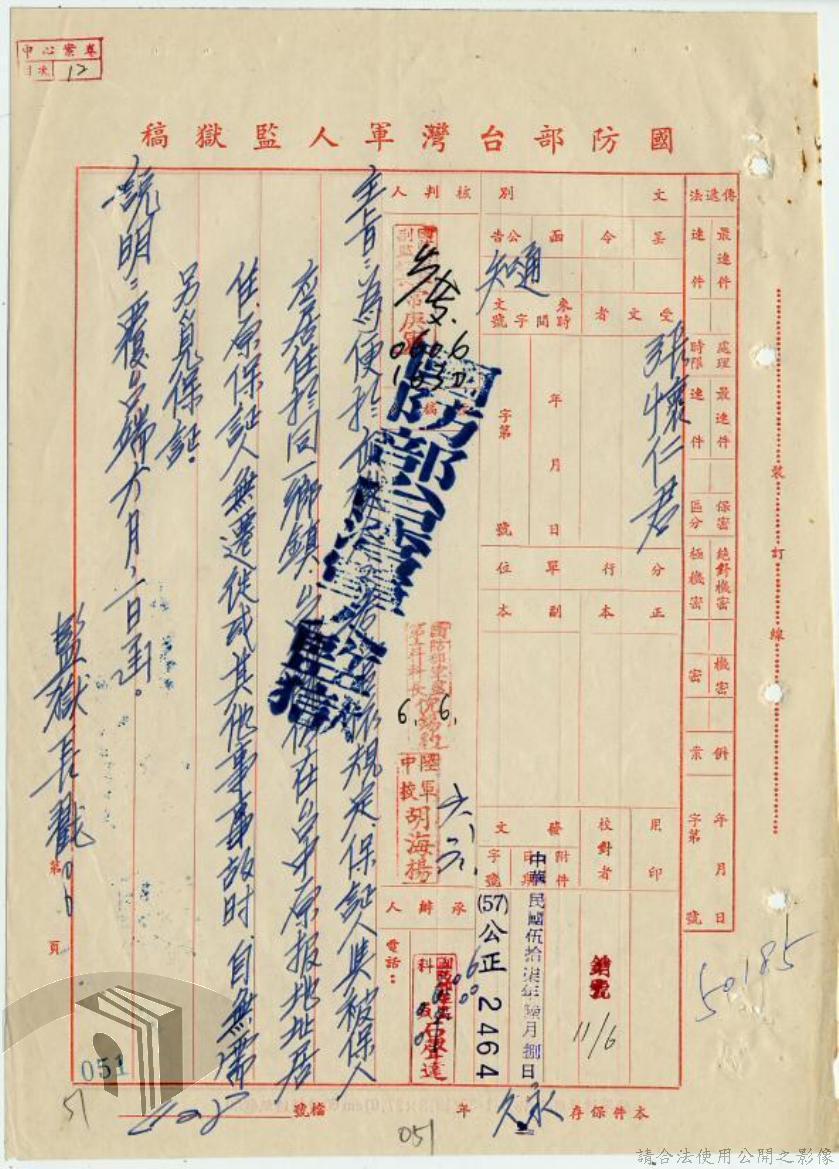 專案中心
目次 12
國防部台灣軍人監獄稿
傳遞法 最速件 速件
處理時限 最速件 速件
保密區分 絕對機密 極機密 機密 密
例案 年月日 字第 號
裝 訂 線
文別 呈 令 函 公告
通知
受文者
張懷仁君
來文 時間 字號
年 月 日
字第 號
分行單位
正本 副本
用印
校對者
銷號
11/6
發文 附件 日期 字號
中華民國伍拾柒年陸月捌日
(57)公正2464
核判人
6.6
核稿
國防部台灣軍人監獄
第
科長
6.6.
陸軍中校 胡海楊
六、六、
承辦人
電話:
主旨:為便於
應居住於同一鄉鎮,
在台中原報地址居
住,原保証人無遷徙或其他事故時,自無需
另覓保証。
一說明:覆台端六月二日函。
依規定,保証人與被保人
監獄長戳
第 頁
50185
051
51
本件保存永久年
檔號
051
請合法使用公開之影像